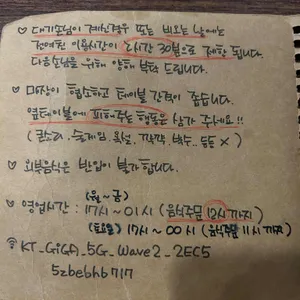 ♡ 대기손님이 계신경우 또는 비오는 날에는
전여친 이용시간이 2시간 30분으로 제한 됩니다.
다음손님을 위해 양해 부탁 드립니다.
♡ 매장이 협소하고 테이블 간격이 좁습니다.
옆테이블에 피해주는 행동은 삼가 주세요!!
(큰소리, 술게임, 욕설, 깍깍, 박수.. 등등 X)
♡ 외부음식은 반입이 불가합니다.
(월~금)
♡ 영업시간 : 17시~01시 (음식주문 12시까지)
(토요일) 17시~00시 (음식주문 11시까지)
KT_GiGA_5G_Wave2_2EC5
5zbebhb717